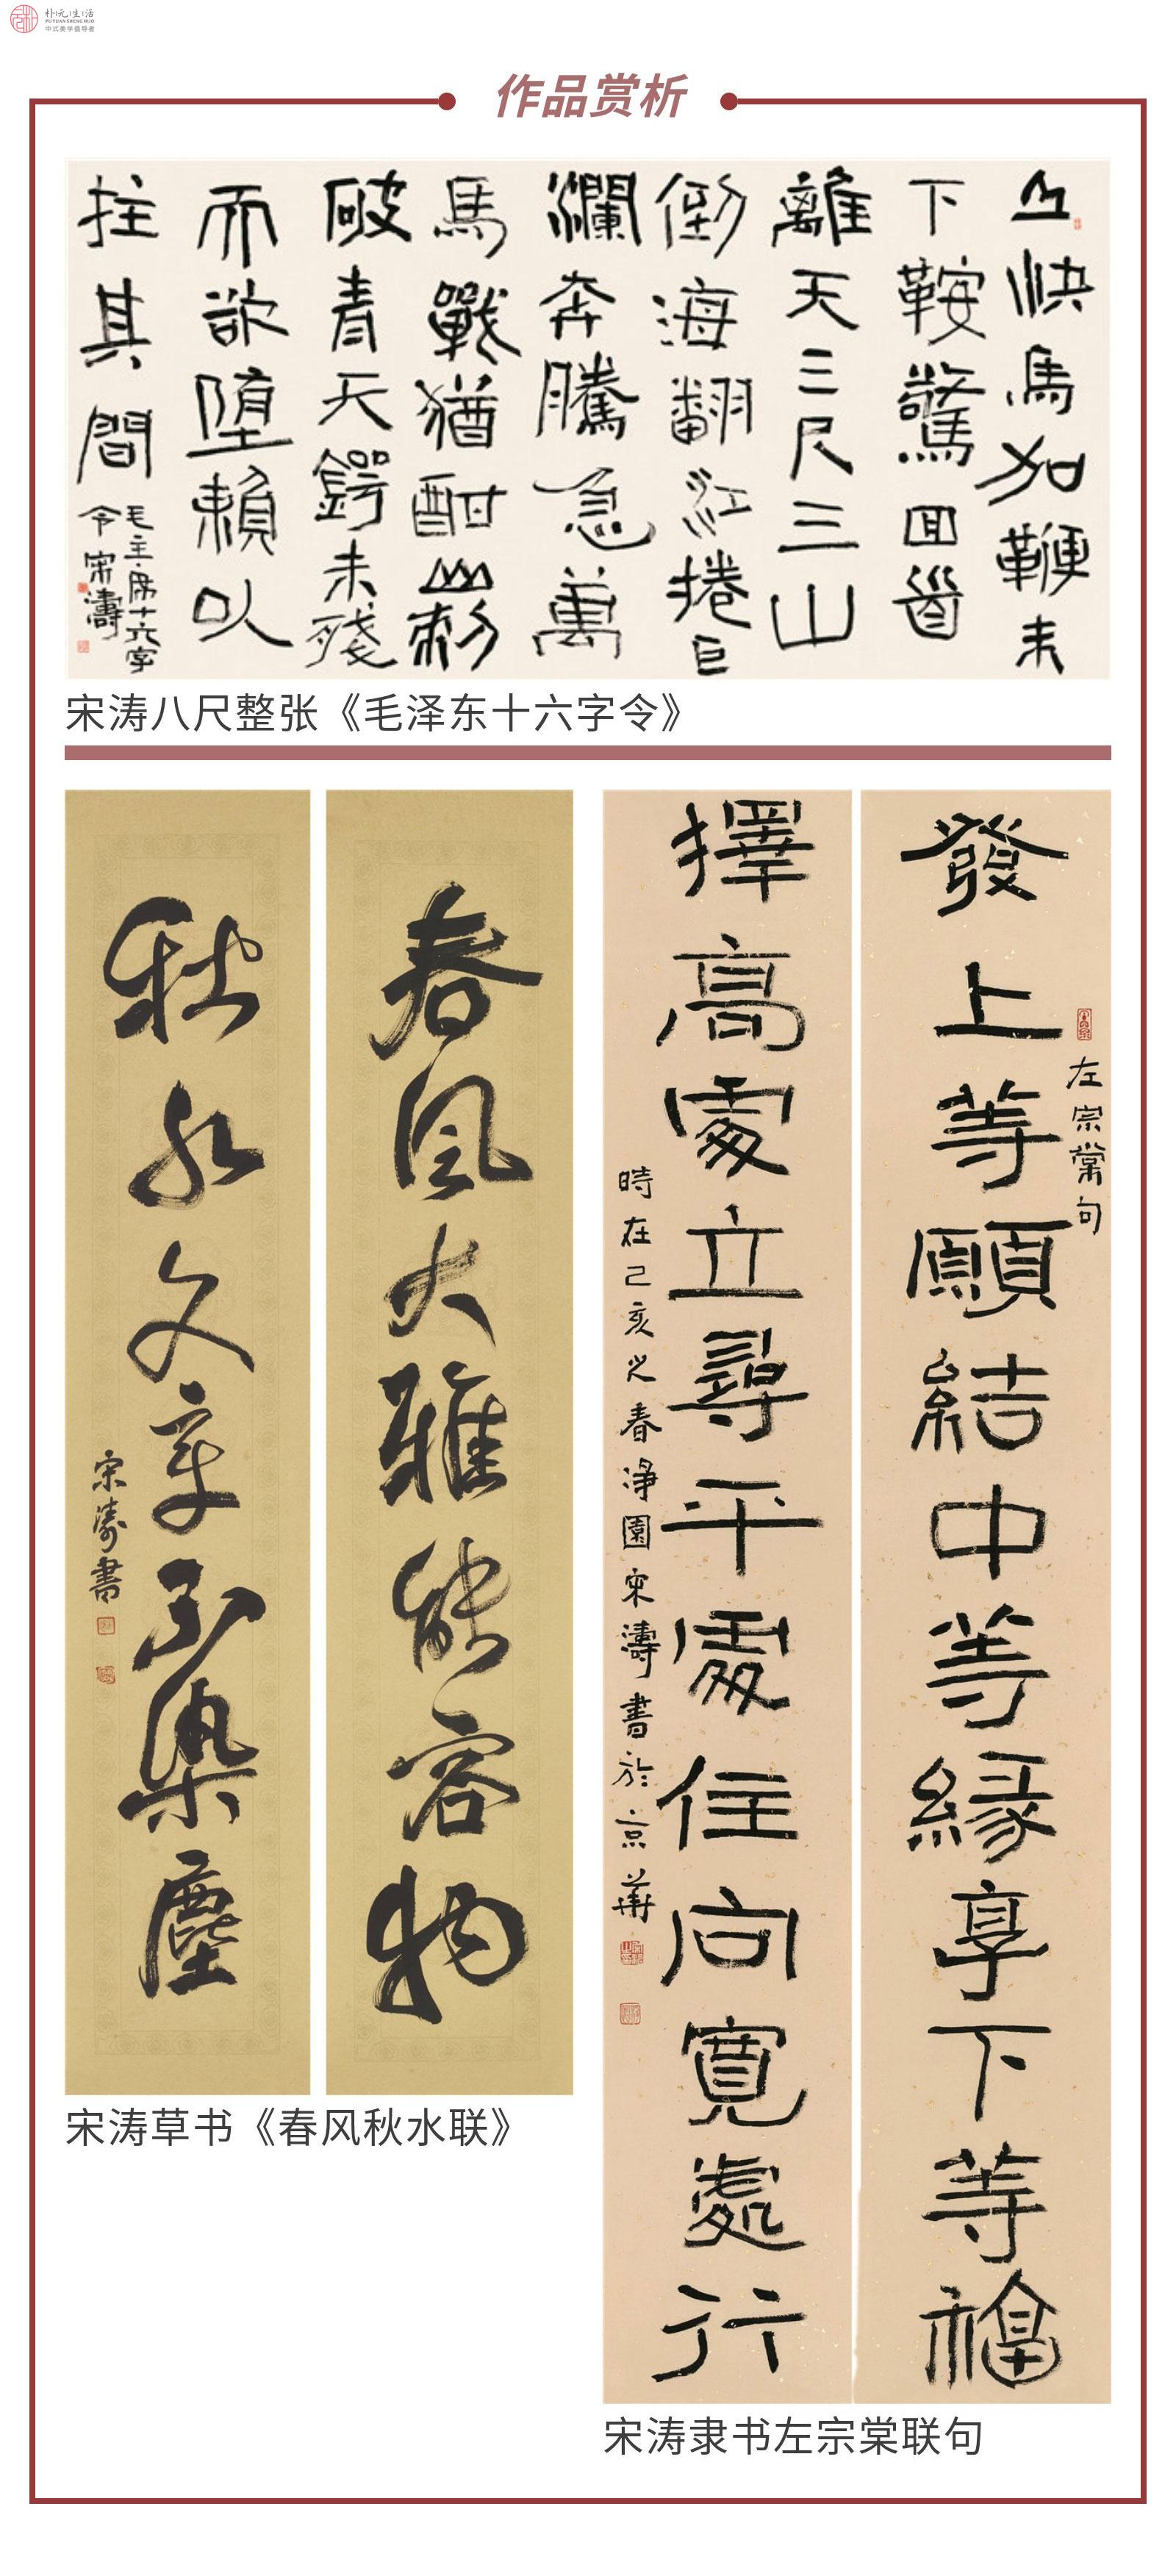 朴元生活
PU YUAN SHENG HUO
中式美学倡导者
作品赏析
山快馬加鞭未
下鞍驚回首
離天三尺三山
倒海翻江捲巨
瀾奔騰急萬
馬戰猶酣山刺
破青天鍔未殘
而欲墮賴以
拄其間
毛主席十六字
令宋濤
宋涛八尺整张《毛泽东十六字令》
春風大雅能容物
秋水文章不染塵
宋濤書
宋涛草书《春风秋水联》
左宗棠句
發上等願結中等緣享下等福
擇高處立尋平處住向寬處行
時在己亥之春淨園宋濤書於京華
宋涛隶书左宗棠联句